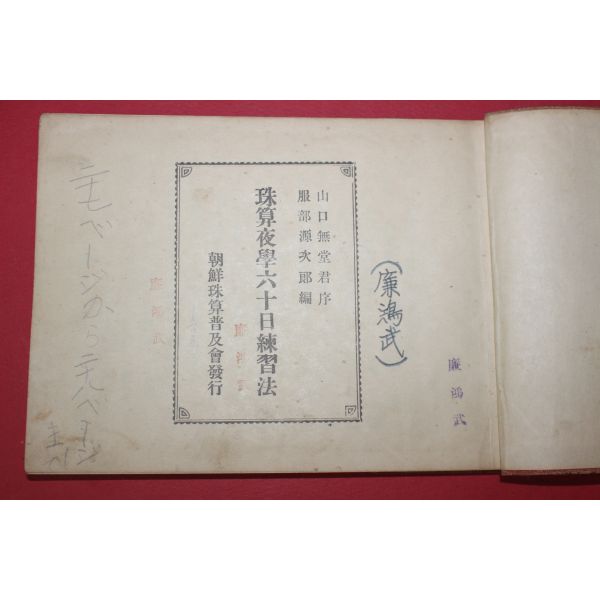 廉鴻武
(廉鴻武)
山口無堂君序
服部源次郎編
珠算夜學六十日練習法
朝鮮珠算普及會發行
廉鴻武
廉鴻武
ページから二九ページ